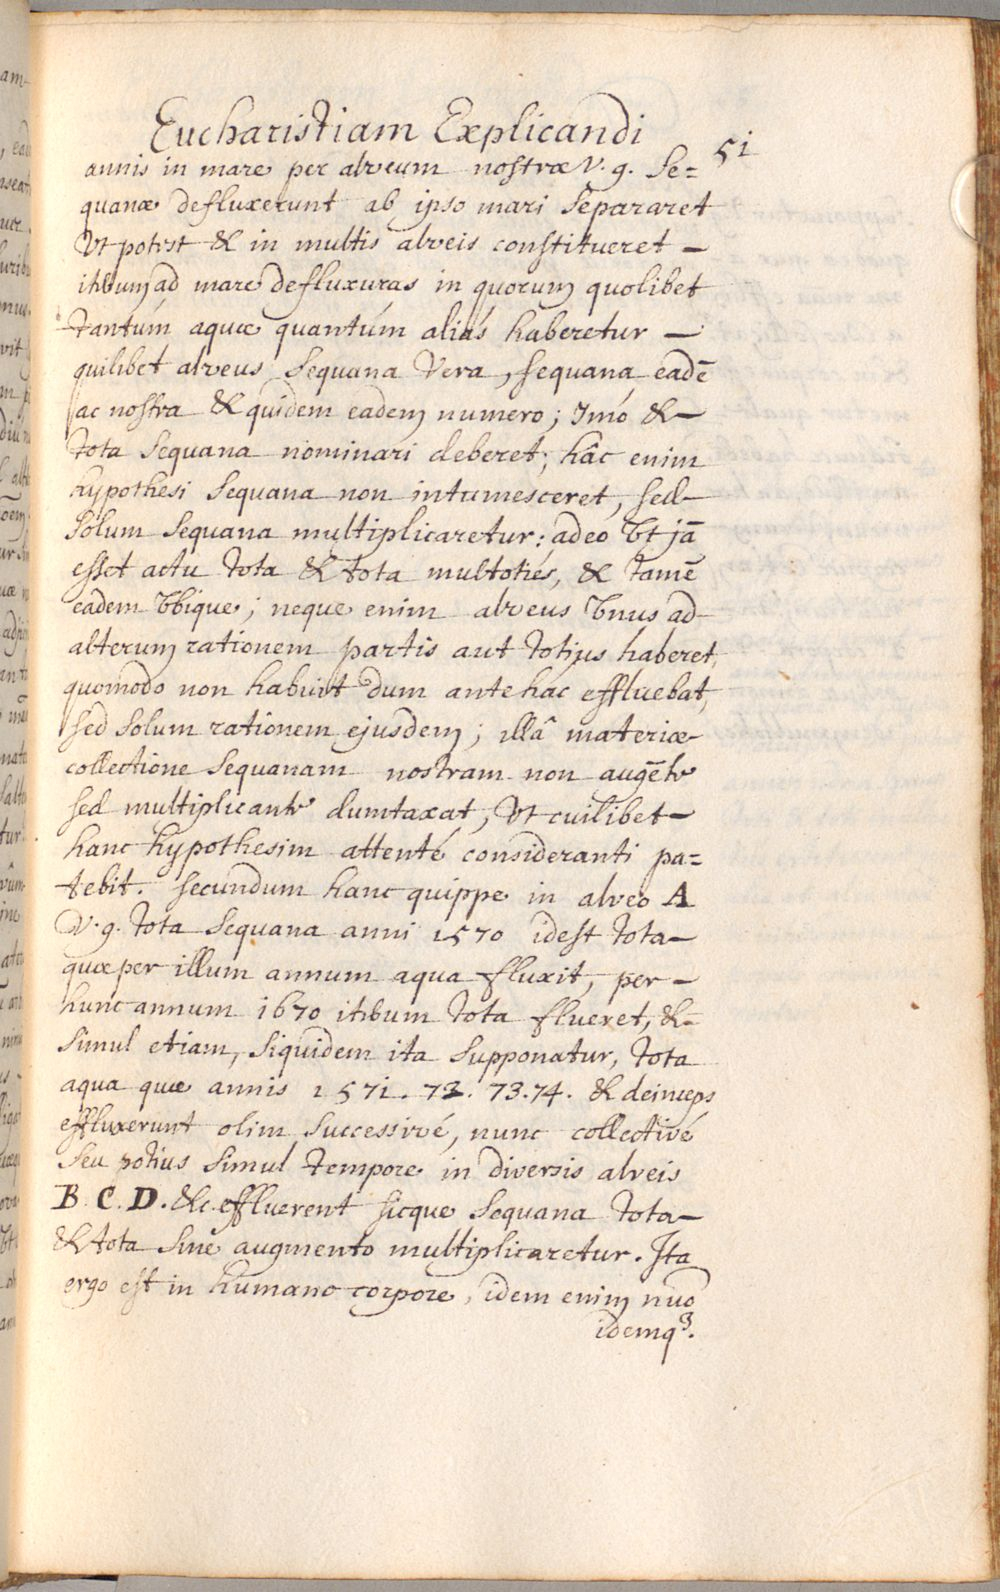 Eucharistiam Explicandi
51
annis in mare per alveum nostræ V. g. Se=
quanæ defluxerunt ab ipso mari separaret
Vt potest & in multis alveis constitueret —
iterum ad mare defluxuras in quorum quolibet
tantúm aquæ quantúm aliás haberetur —
quilibet alveus Sequana Vera, sequana eadē
ac nostra & quidem eadem numero; Imó & —
tota Sequana nominari deberet; hâc enim
hypothesi Sequana non intumesceret, sed —
Solum Sequana multiplicaretur: adeó Vt jā
esset actu tota & tota multotiés, & tamē
eadem Vbique; neque enim alveus Vnus ad
alterum rationem partis aut totius haberet,
quomodo non habuit dum antehac effluebat,
sed Solum rationem ejusdem; illâ materiæ
collectione Sequanam nostram non augēte
sed multiplicante dumtaxat, Vt cuilibet —
hanc hypothesim attenté consideranti pa=
tebit. Secundum hanc quippe in alveo A
V. g. tota Sequana anni 1570 idest tota —
quæ per illum annum aqua fluxit, per —
hunc annum 1670 iterum tota flueret, & —
simul etiam, siquidem ita Supponatur, tota
aqua quæ annis 1571. 72. 73. 74. & deinceps
effluxerunt olim Successivé, nunc collectivé
Seu potius Simul tempore in diversis alveis
B. C. D. &c. effluerent sicque Sequana tota —
& tota Sine augmento multiplicaretur. Ita
ergo est in humano corpore, idem enim nūo
idemq3.